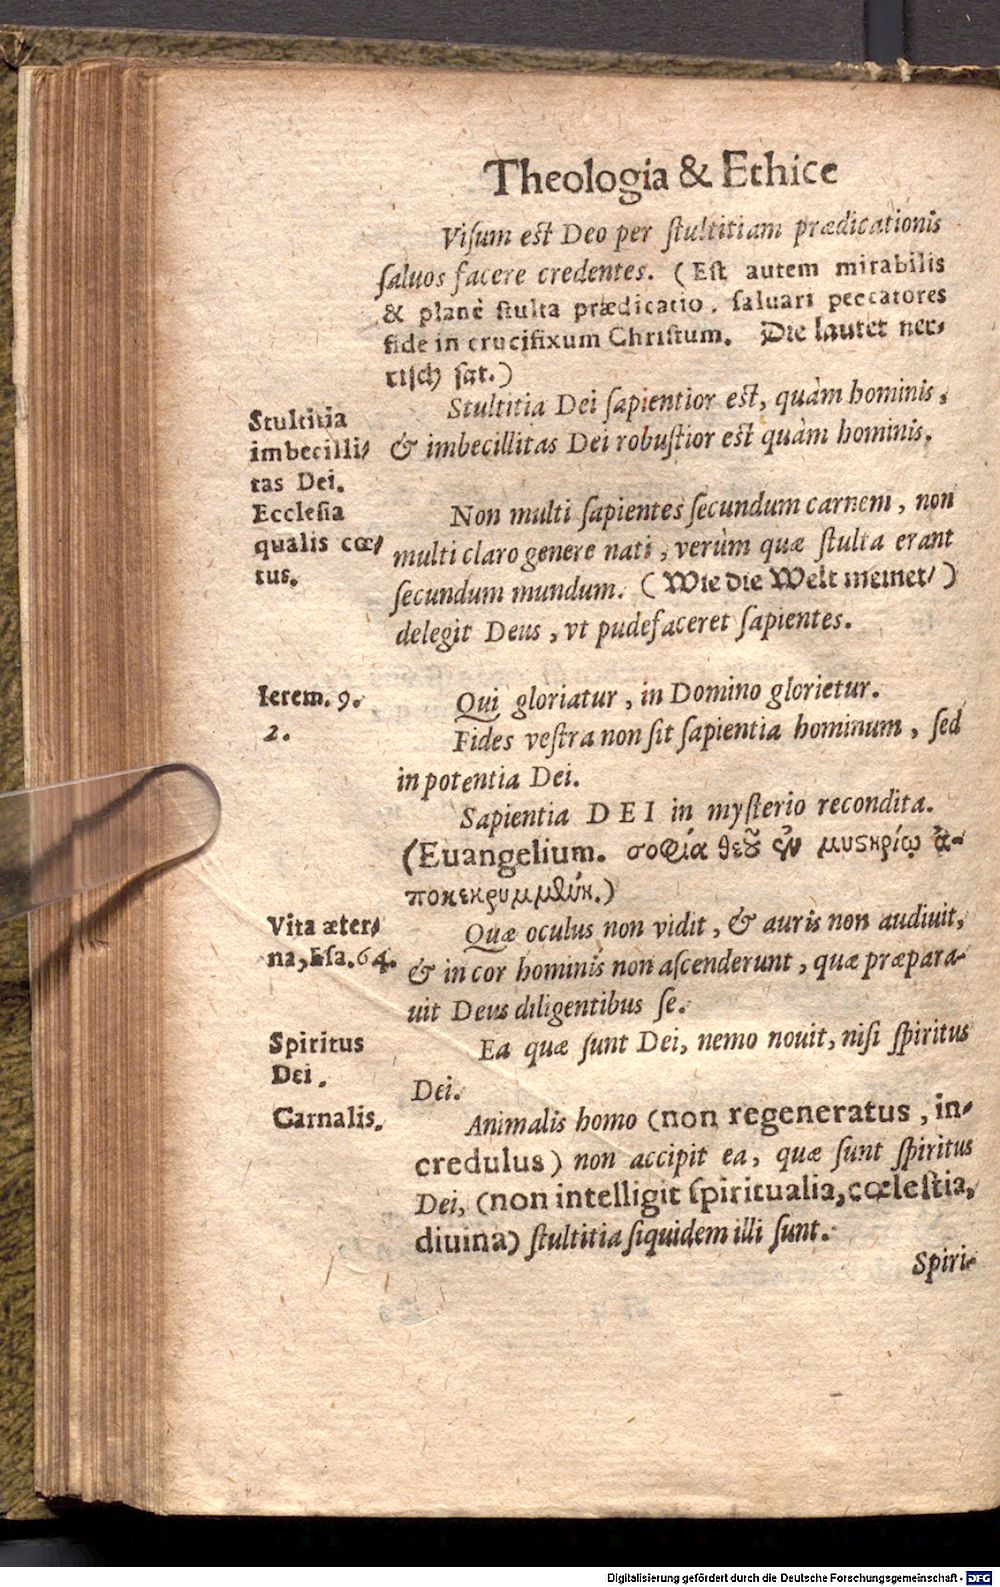 Theologia & Ethice
Visum est Deo per stultitiam prædicationis
saluos facere credentes. (Est autem mirabilis
& planè stulta prædicatio, saluari peccatores
fide in crucifixum Christum. Die lautet ner⸗
risch gat.)
Stultitia
imbecilli⸗
tas Dei.
Stultitia Dei sapientior est, quàm hominis,
& imbecillitas Dei robustior est quàm hominis.
Ecclesia
qualis cœ⸗
tus.
Non multi sapientes secundum carnem, non
multi claro genere nati, verùm quæ stulta erant
secundum mundum. (Wie die Welt meinet/)
delegit Deus, vt pudefaceret sapientes.
Ierem. 9.
Qui gloriatur, in Domino glorietur.
2.
Fides vestra non sit sapientia hominum, sed
in potentia Dei.
Sapientia DEI in mysterio recondita.
(Euangelium. σοφία θεοῦ ἐν μυστηρίῳ ἀ-
ποκεκρυμμένη.)
Vita æter⸗
na, Esa. 64.
Quæ oculus non vidit, & auris non audiuit,
& in cor hominis non ascenderunt, quæ præpara-
uit Deus diligentibus se.
Spiritus
Dei.
Ea quæ sunt Dei, nemo nouit, nisi spiritus
Dei.
Carnalis.
Animalis homo (non regeneratus, in⸗
credulus) non accipit ea, quæ sunt spiritus
Dei, (non intelligit spiritualia, cœlestia,
diuina) stultitia siquidem illi sunt.
Spiri-
Digitalisierung gefördert durch die Deutsche Forschungsgemeinschaft - DFG